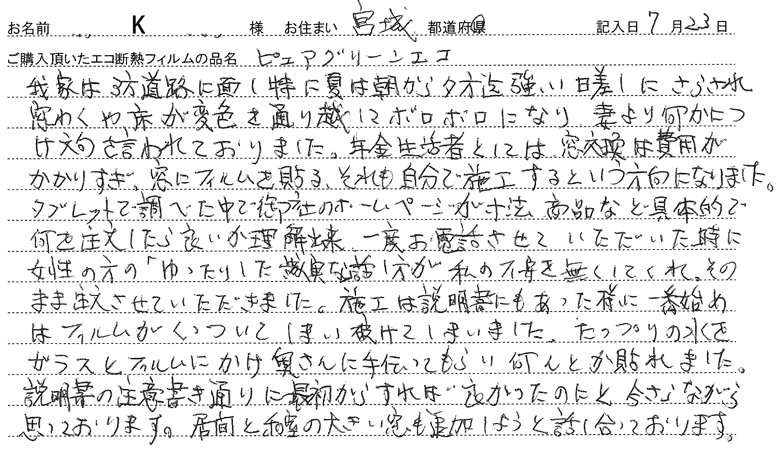 お名前 K 様 お住まい 宮城 都道府県 記入日 7月23日
ご購入頂いたエコ断熱フィルムの品名 ピュアグリーンエコ
我家は3方道路に面し特に夏は朝から夕方迄強い日差しにさらされ
窓わくや床が変色を通り越してボロボロになり 妻より何かにつ
け文句を言われておりました。年金生活者としては窓交換は費用が
かかりすぎ、窓にフィルムを貼る、それも自分で施工するという方向になりました。
タブレットで調べた中で御社のホームページが寸法、商品など具体的で
何を注文したら良いか理解出来、一度お電話させていただいた時に
女性の方の「ゆったりした誠実な話し方が私の不安を無くしてくれ、その
まま注文させていただきました。施工は説明書にもあった様に一番始め
はフィルムがくっついてしまい破けてしまいました。たっぷりの水を
ガラスとフィルムにかけ奥さんに手伝ってもらい何んとか貼れました。
説明書の注意書き通りに最初からすれば良かったのにと今さらながら
思っております。居間と和室の大きい窓も追加しようと話し合っております。